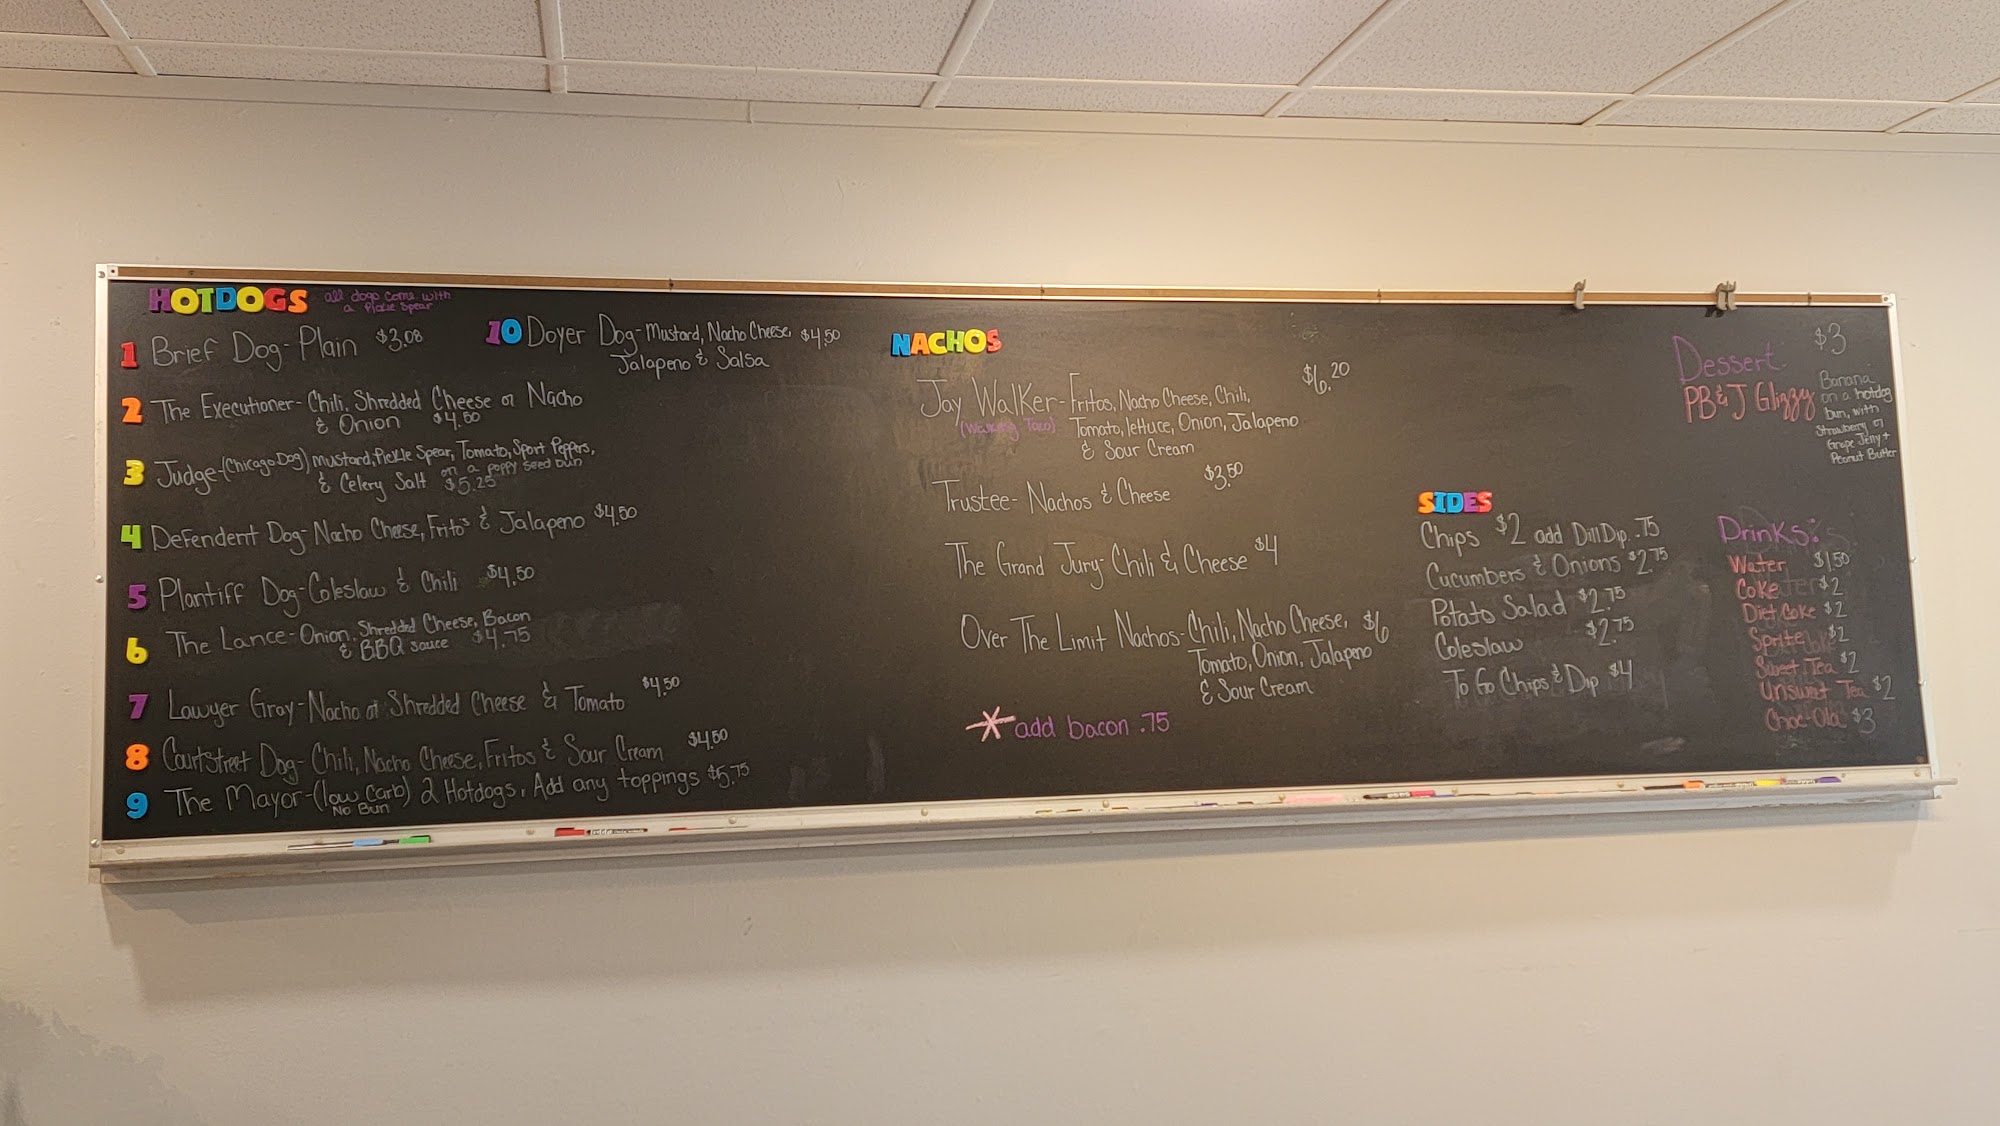 HOTDOGS all dogs come with
a Pickle Spear
1 Brief Dog- Plain $3.08
2 The Executioner- Chili, Shredded Cheese or Nacho
& Onion $4.50
3 Judge-(Chicago Dog) Mustard, Pickle Spear, Tomato, Sport Peppers,
& Celery Salt on a poppy seed bun
$5.25
4 Defendent Dog- Nacho Cheese, Frito's & Jalapeno $4.50
5 Plantiff Dog- Coleslaw & Chili $4.50
6 The Lance- Onion, Shredded Cheese, Bacon
& BBQ sauce $4.75
7 Lawyer Gray- Nacho or Shredded Cheese & Tomato $4.50
8 Courtstreet Dog- Chili, Nacho Cheese, Fritos & Sour Cream $4.50
9 The Mayor- (low Carb) 2 Hotdogs, Add any toppings $5.75
No Bun
10 Doyer Dog- Mustard, Nacho Cheese, $4.50
Jalapeno & Salsa
NACHOS
Jay Walker- Fritos, Nacho Cheese, Chili, $6.20
(Walking Taco) Tomato, lettuce, Onion, Jalapeno
& Sour Cream
Trustee- Nachos & Cheese $3.50
The Grand Jury- Chili & Cheese $4
Over The Limit Nachos- Chili, Nacho Cheese, $6
Tomato, Onion, Jalapeno
& Sour Cream
* add bacon .75
SIDES
Chips $2 add Dill Dip .75
Cucumbers & Onions $2.75
Potato Salad $2.75
Coleslaw $2.75
To Go Chips & Dip $4
Dessert: $3
PB&J Glizzy
Banana
on a hotdog
bun, with
Strawberry or
Grape Jelly +
Peanut Butter
Drinks:
Water $1.50
Coke $2
Diet Coke $2
Sprite $2
Sweet Tea $2
Unsweet Tea $2
Choc-Ola $3